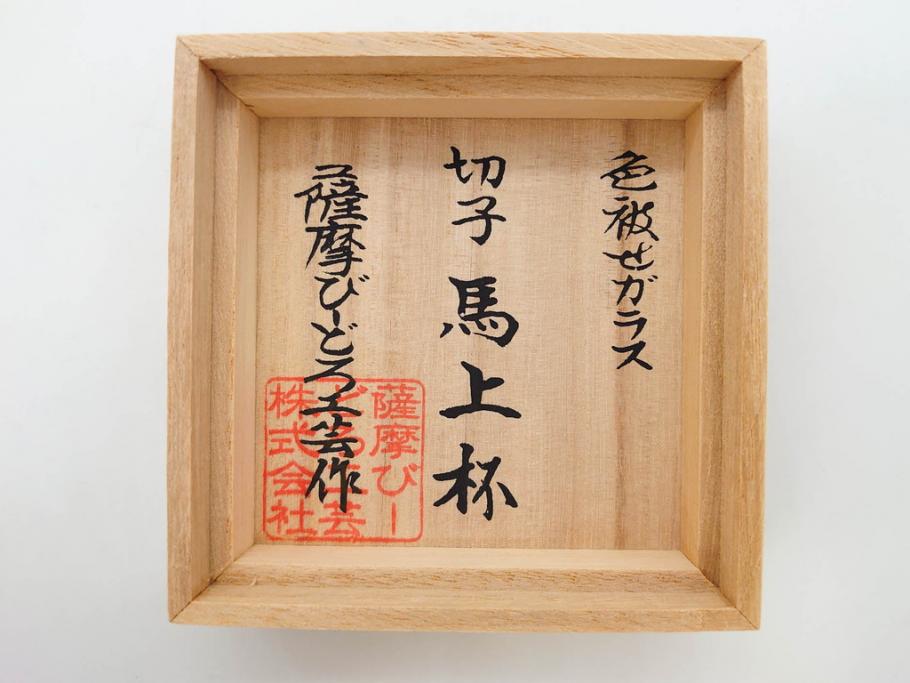 色被せガラス
切子 馬上杯
薩摩びーどろ工芸作
薩摩びー
どろ工芸
株式会社